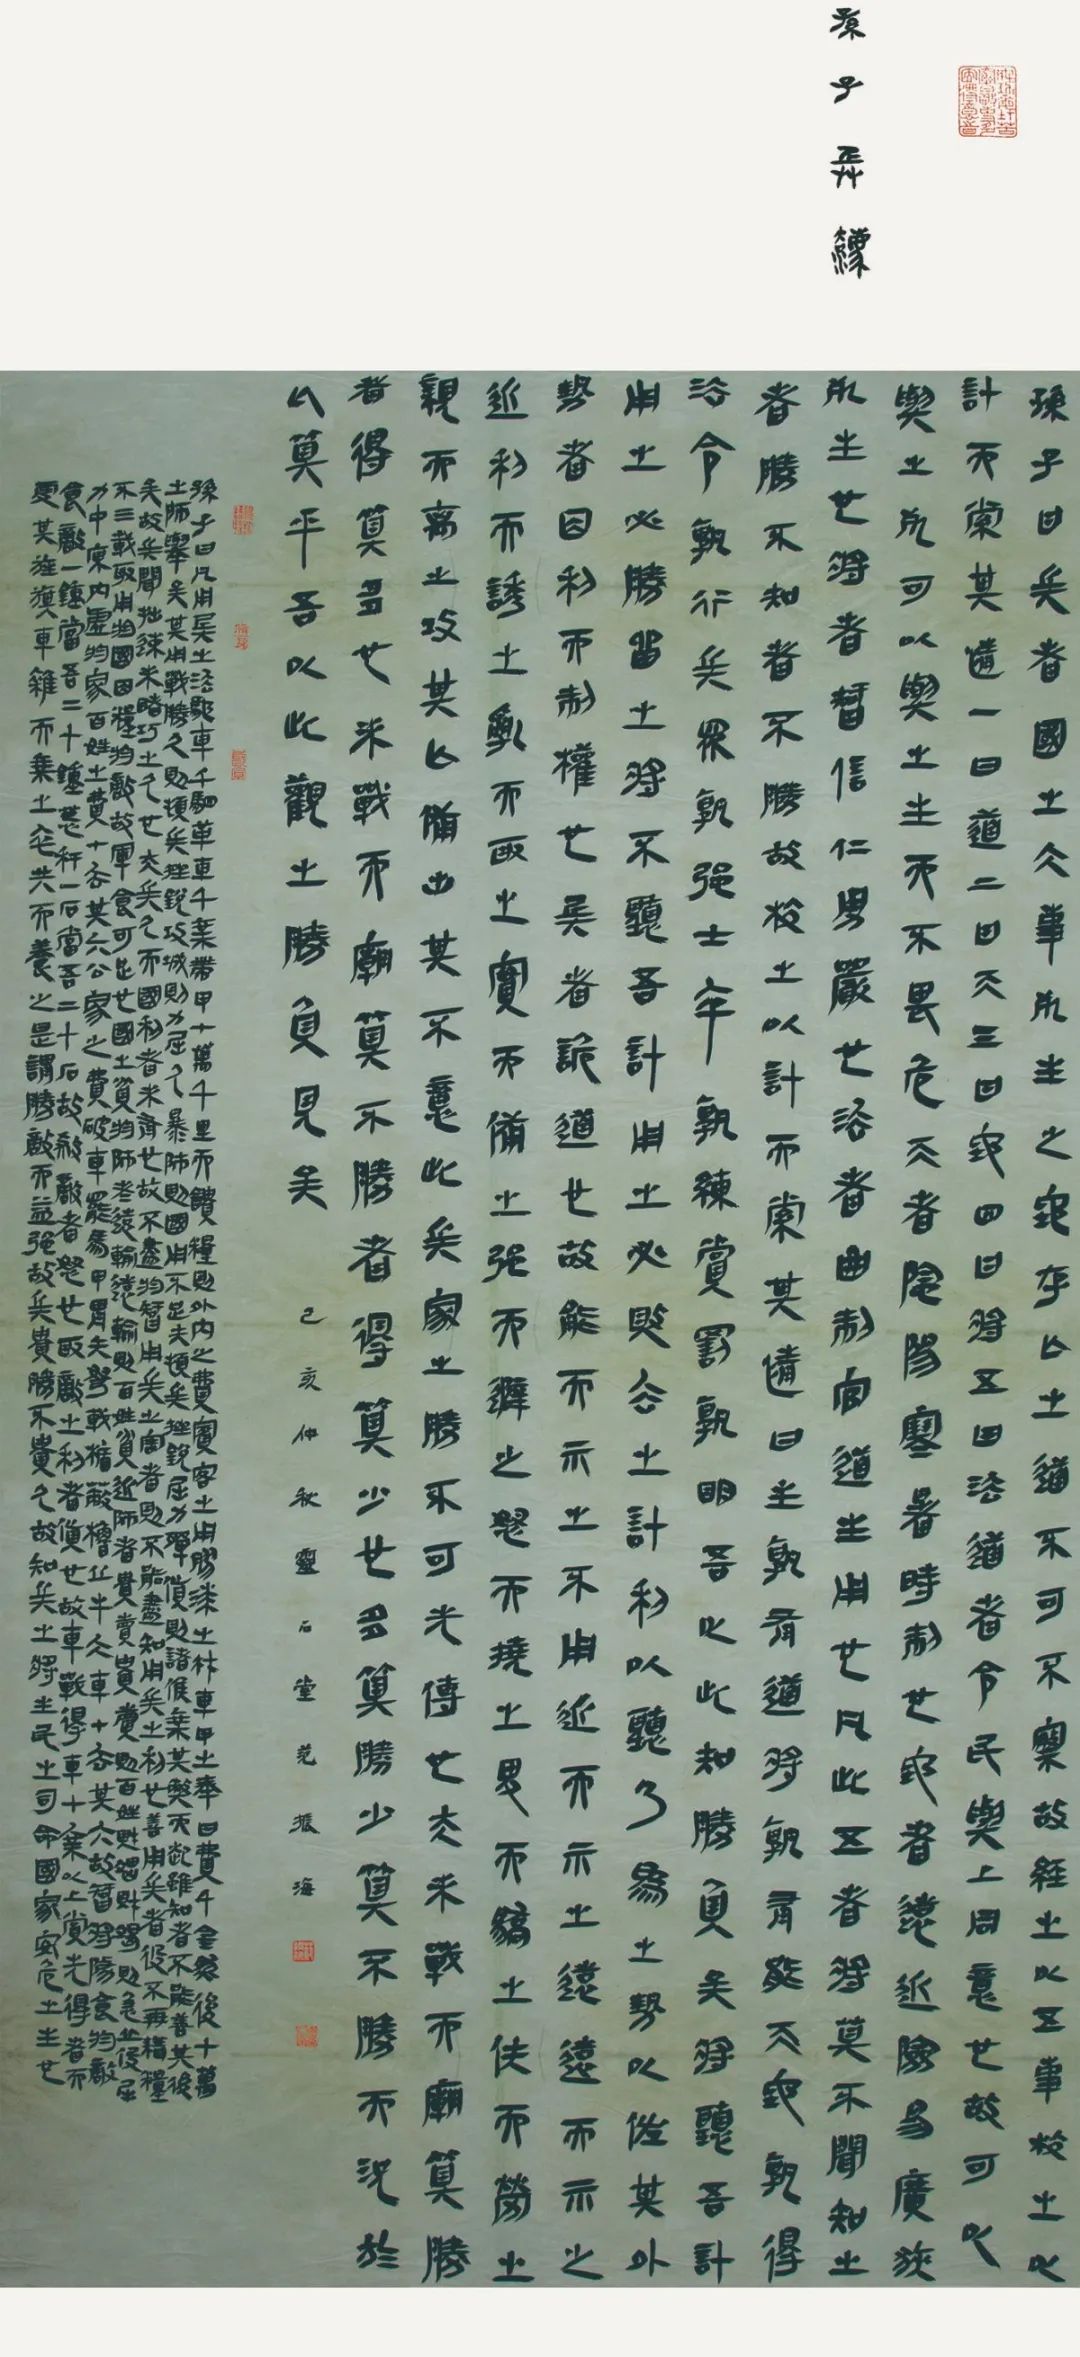 孫子
孫子曰兵者國之大事死生之地存亡之道不可不察故經之以五事校之以
計而索其情一曰道二曰天三曰地四曰將五曰法道者令民與上同意也故可以
與之死可以與之生而不畏危天者陰陽寒暑時制也地者遠近險易廣狹
死生也將者智信仁勇嚴也法者曲制官道主用也凡此五者將莫不聞知之
者勝不知者不勝故校之以計而索其情曰主孰有道將孰有能天地孰得
法令孰行兵眾孰強士卒孰練賞罰孰明吾以此知勝負矣將聽吾計
用之必勝留之將不聽吾計用之必敗去之計利以聽乃為之勢以佐其外
勢者因利而制權也兵者詭道也故能而示之不用近而示之遠遠而示之
近利而誘之亂而取之實而備之強而避之怒而撓之卑而驕之佚而勞之
親而離之攻其亡備出其不意此兵家之勝不可先傳也夫未戰而廟筭勝
者得筭多也未戰而廟筭不勝者得筭少也多筭勝少筭不勝而況於
亡筭乎吾以此觀之勝負見矣
己亥仲秋靈石堂范振海
孫子曰凡用兵之法馳車千駟革車千乘帶甲十萬千里而饋糧則外內之費賓客之用膠漆之材車甲之奉日費千金然後十萬
之師舉矣其用戰勝久則頓兵挫銳攻城則力屈久暴師則國用不足夫頓兵挫銳屈力殫貨則諸侯乘其弊而起雖知者不能善其後
矣故兵聞拙速未睹巧之久也夫兵久而國利者未有也故不盡於智用兵之害者則不能盡知用兵之利也善用兵者役不再籍糧
不三載取用於國因糧於敵故軍食可足也國之貧於師者遠輸遠輸則百姓貧近師者貴賣貴賣則百姓財竭財竭則急丘役屈
力中原內虛於家百姓之費十去其六公家之費破車罷馬甲冑矢弩戟楯蔽櫓丘牛大車十去其六故智將務食於敵
食敵一鍾當吾二十鍾萁秆一石當吾二十石故殺敵者怒也取敵之利者貨也故車戰得車十乘以上賞先得者而
更其旌旗車雜而乘之卒共而養之是謂勝敵而益強故兵貴勝不貴久故知兵之將生民之司命國家安危之主也